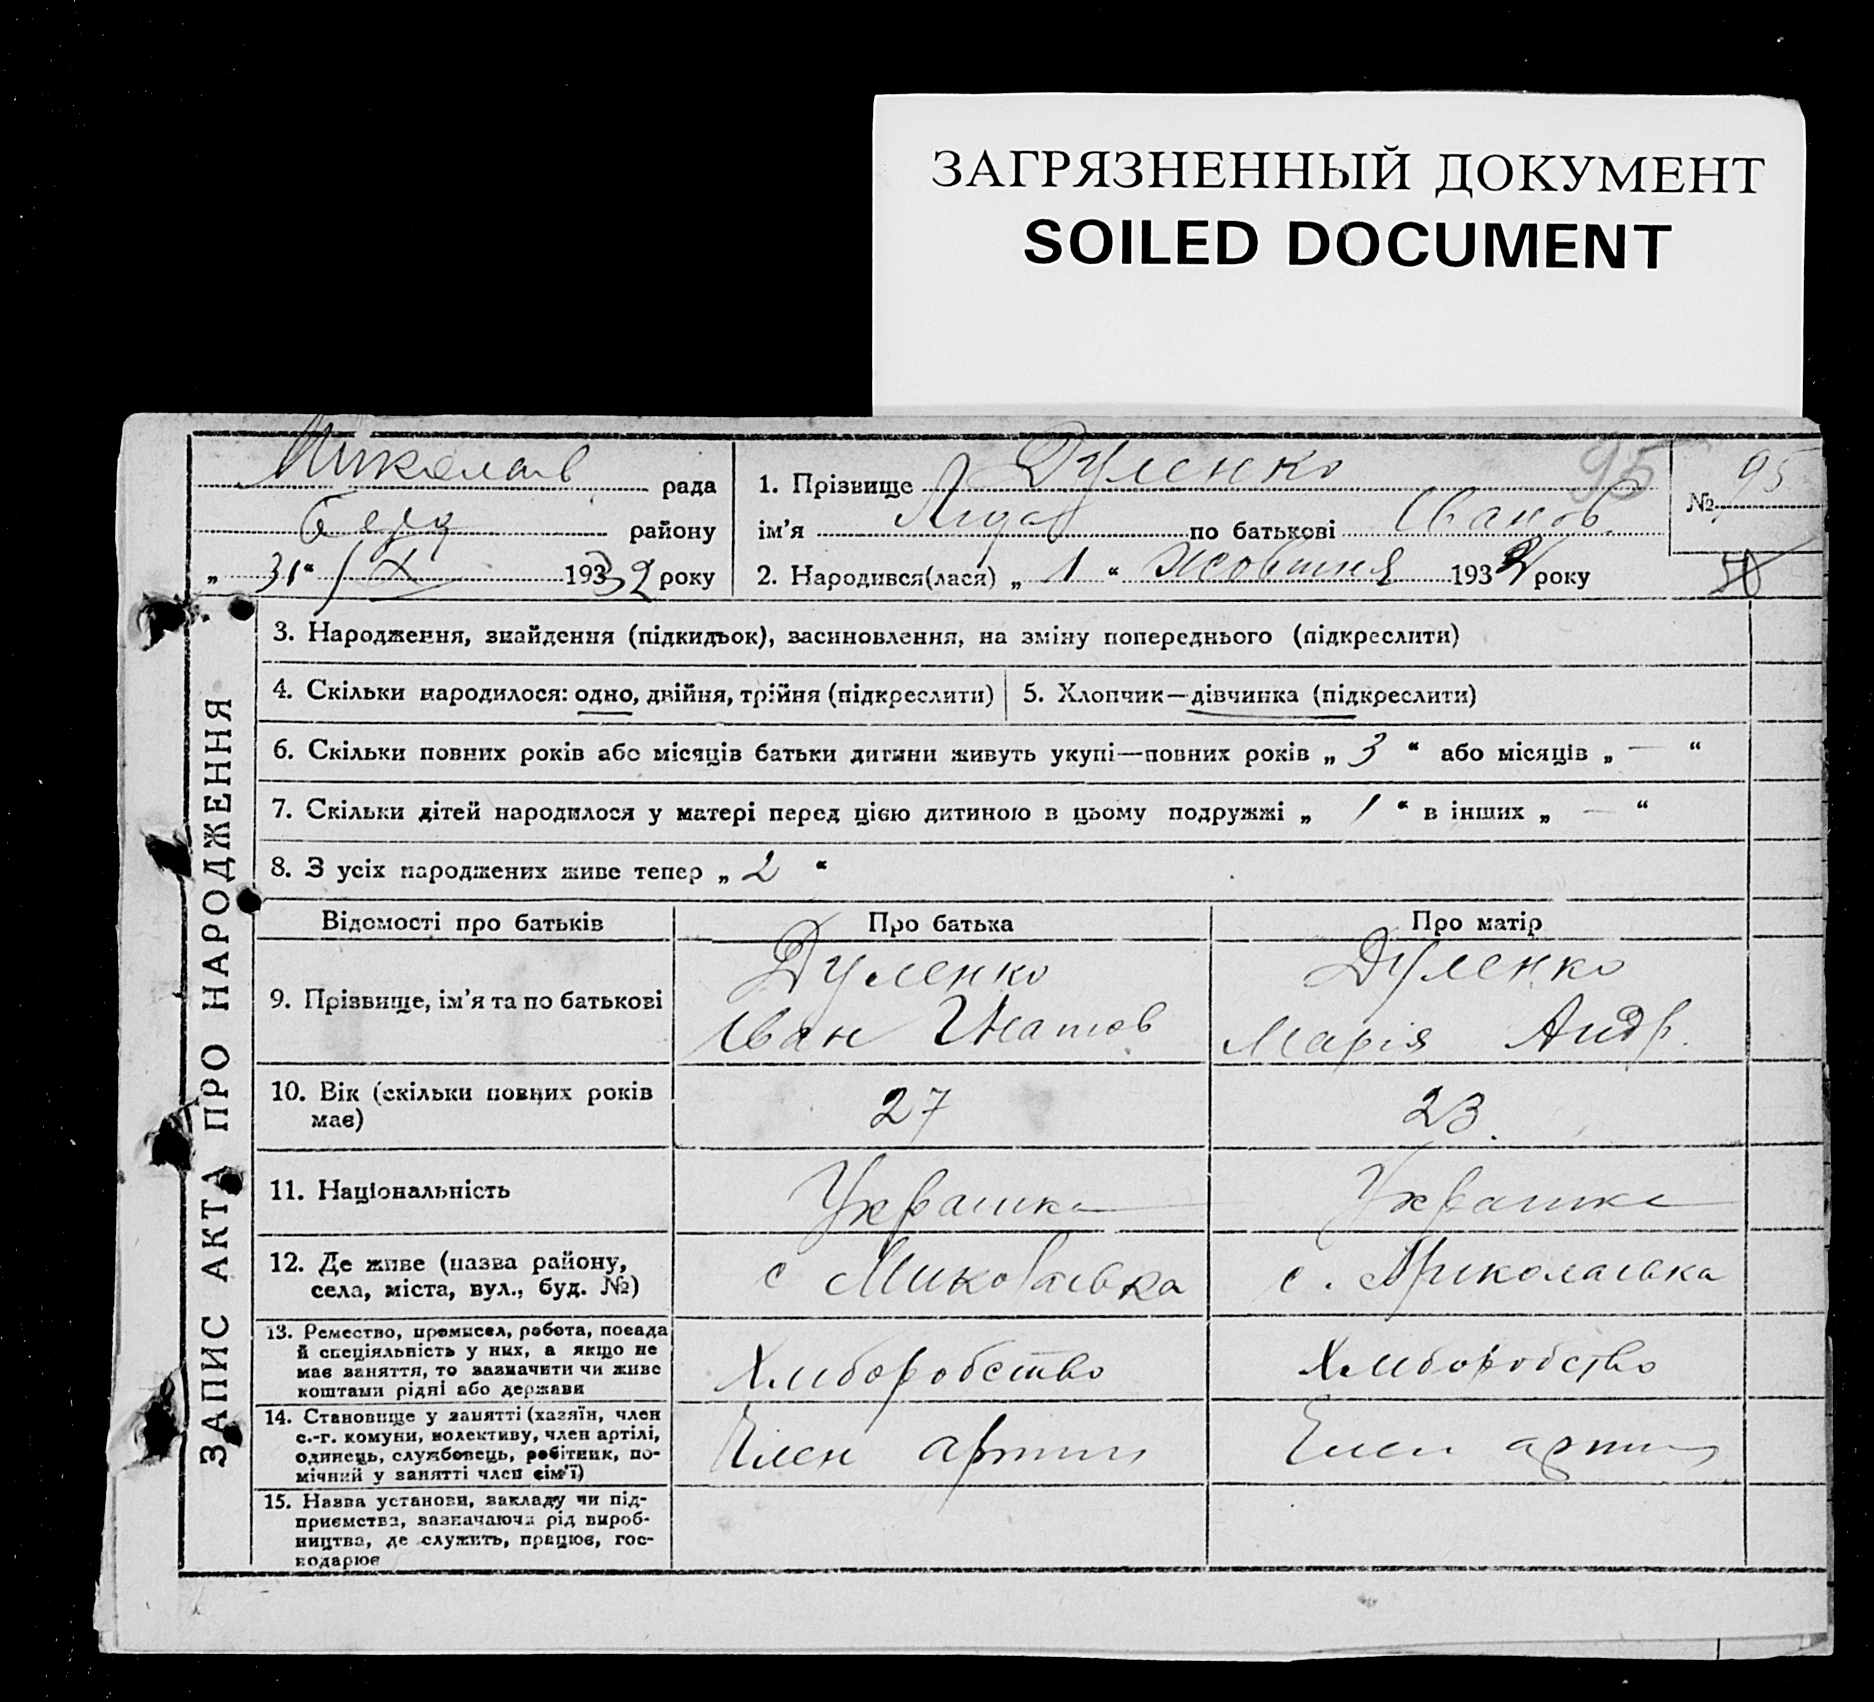 ЗАГРЯЗНЕННЫЙ ДОКУМЕНТ
SOILED DOCUMENT
Миколаїв рада
району
„ 31 “ / X 1932 року
1. Прізвище Дуленко 95
ім'я Лида по батькові Іванов.
2. Народився(лася) „ 1 “ жовтня 1932 року
№ 95
ЗАПИС АКТА ПРО НАРОДЖЕННЯ
3. Народження, знайдення (підкидьок), засиновлення, на зміну попереднього (підкреслити)
4. Скільки народилося: одно, двійня, трійня (підкреслити)
5. Хлопчик—дівчинка (підкреслити)
6. Скільки повних років або місяців батьки дитини живуть укупі—повних років „ 3 “ або місяців „ — “
7. Скільки дітей народилося у матері перед цією дитиною в цьому подружжі „ 1 “ в інших „ — “
8. З усіх народжених живе тепер „ 2 “
Відомості про батьків
Про батька
Про матір
9. Прізвище, ім'я та по батькові
Дуленко
Іван Гнатов
Дуленко
Марія Андр.
10. Вік (скільки повних років
має)
27
23.
11. Національність
Украинка
Украинка
12. Де живе (назва району,
села, міста, вул., буд. №)
с Миколаївка
с. Миколаївка
13. Ремество, промисел, робота, посада
й спеціяльність у них, а якщо не
має заняття, то зазначити чи живе
коштами рідні або держави
Хліборобство
Хліборобство
14. Становище у занятті (хазяїн, член
с.-г. комуни, колективу, член артілі,
одинець, службовець, робітник, по-
мічний у занятті член сім'ї)
Член артілі
Член артілі
15. Назва установи, закладу чи під-
приємства, зазначаючи рід вироб-
ництва, де служить, працює, гос-
подарює